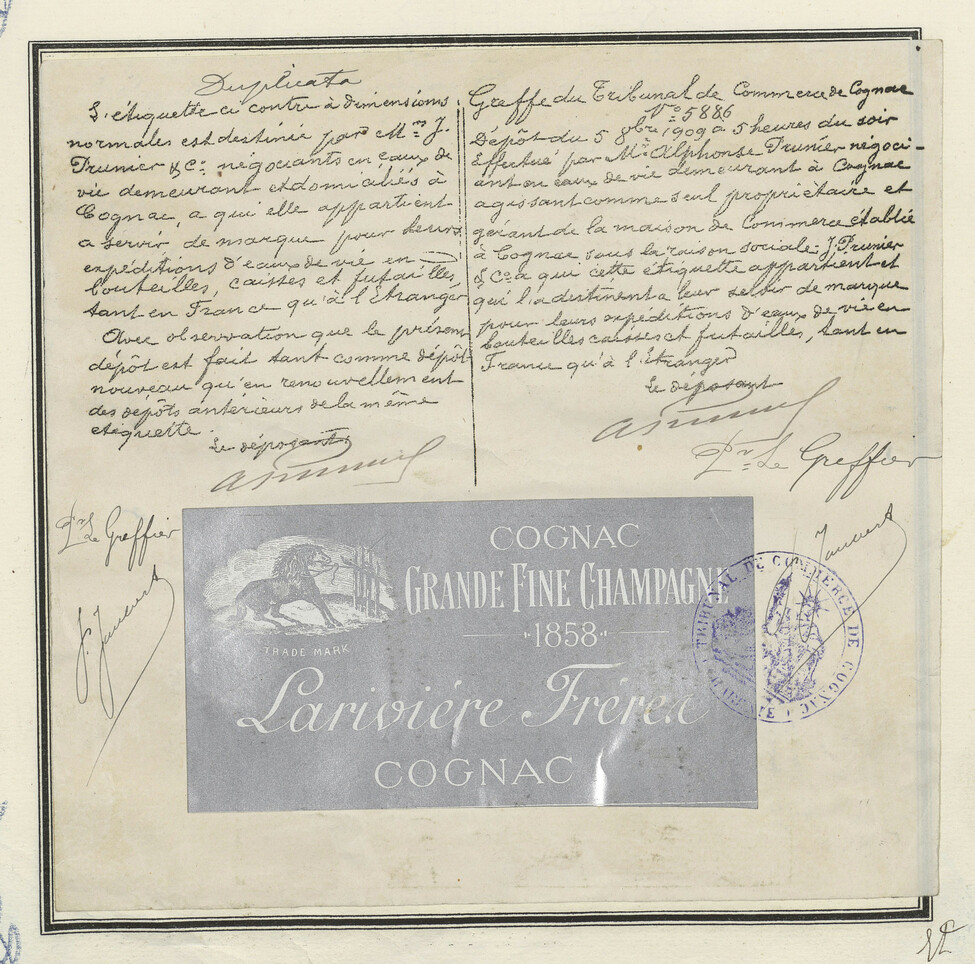 Duplicata
L'étiquette ci contre à dimensions
normales est destinée par M.rs J.
Prunier & C.ie négociants en eaux de
vie demeurant et domiciliés à
Cognac, a qui elle appartient
a servir de marque pour leurs
expéditions d'eaux de vie en
bouteilles, caisses et futailles,
tant en France qu'à l'Etranger
Avec observation que le présent
dépôt est fait tant comme dépôt
nouveau qu'en renouvellement
des dépôts antérieurs de la même
etiquette.
Le déposant
APrunier
Pr Le Greffier
Greffe du Tribunal de Commerce de Cognac
No 5886
Dépôt du 5 8bre 1909 a 5 heures du soir
Effectué par Mr Alphonse Prunier négoci-
ant en eaux de vie demeurant à Cognac
agissant comme seul propriétaire et
gérant de la maison de Commerce établie
à Cognac sous la raison sociale: J. Prunier
& Co a qui cette étiquette appartient et
qui l'a destinent a leur servir de marque
pour leurs expéditions d'eaux de vie en
bouteilles caisses et futailles, tant en
France qu'à l'Étranger
Le déposant
APrunier
Pr Le Greffier
COGNAC
GRANDE FINE CHAMPAGNE
1858
TRADE MARK
Lariviére Fréres
COGNAC
TRIBUNAL DE COMMERCE DE COGNAC